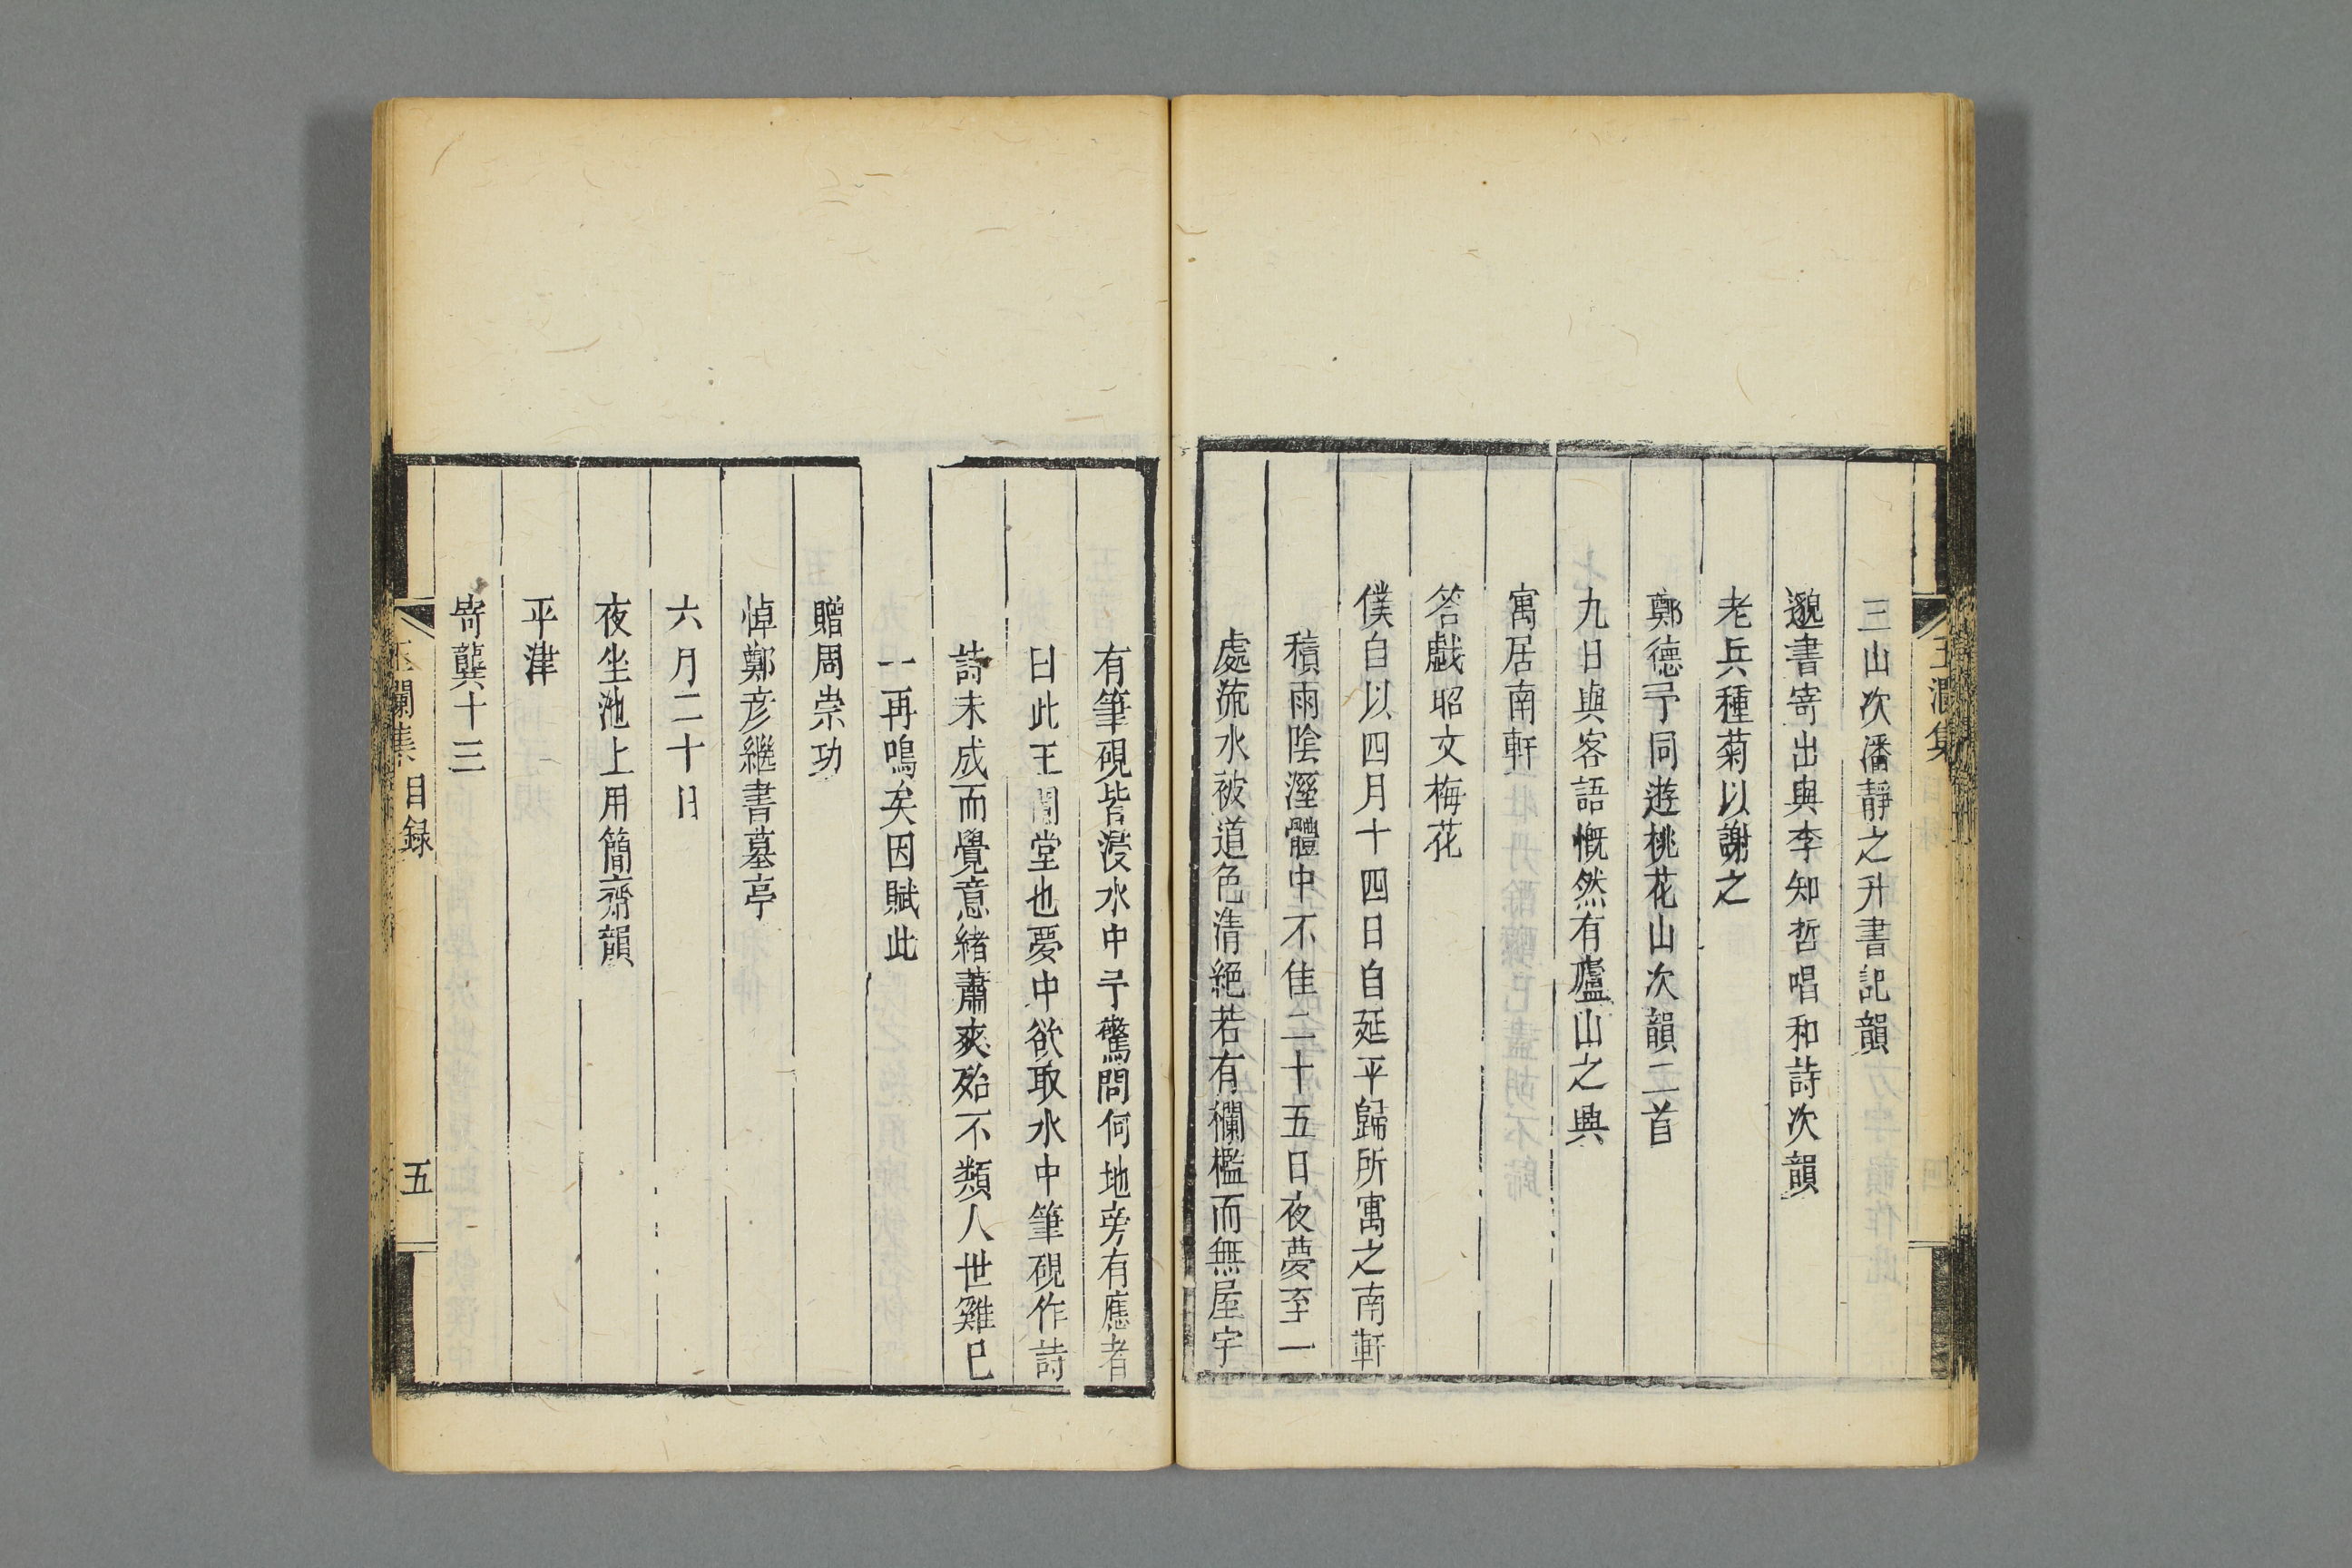 三山次潘靜之升書記韻
邈書寄出與李知哲唱和詩次韻
老兵種菊以謝之
鄭德予同遊桃花山次韻二首
九日與客語慨然有廬山之興
寓居南軒
答戲昭文梅花
僕自以四月十四日自延平歸所寓之南軒
積雨陰溼體中不佳二十五日夜夢至一
處流水被道色清絕若有欄檻而無屋宇
有筆硯皆漫水中予驚問何地旁有應者
曰此王間堂也夢中欲取水中筆硯作詩
詩未成而覺意緒蕭爽殆不類人世雞已
一再鳴矣因賦此
贈周崇功
悼鄭彥繼書墓亭
六月二十日
夜坐池上用簡齋韻
平津
寄龔十三
玉瀾集 目録 五